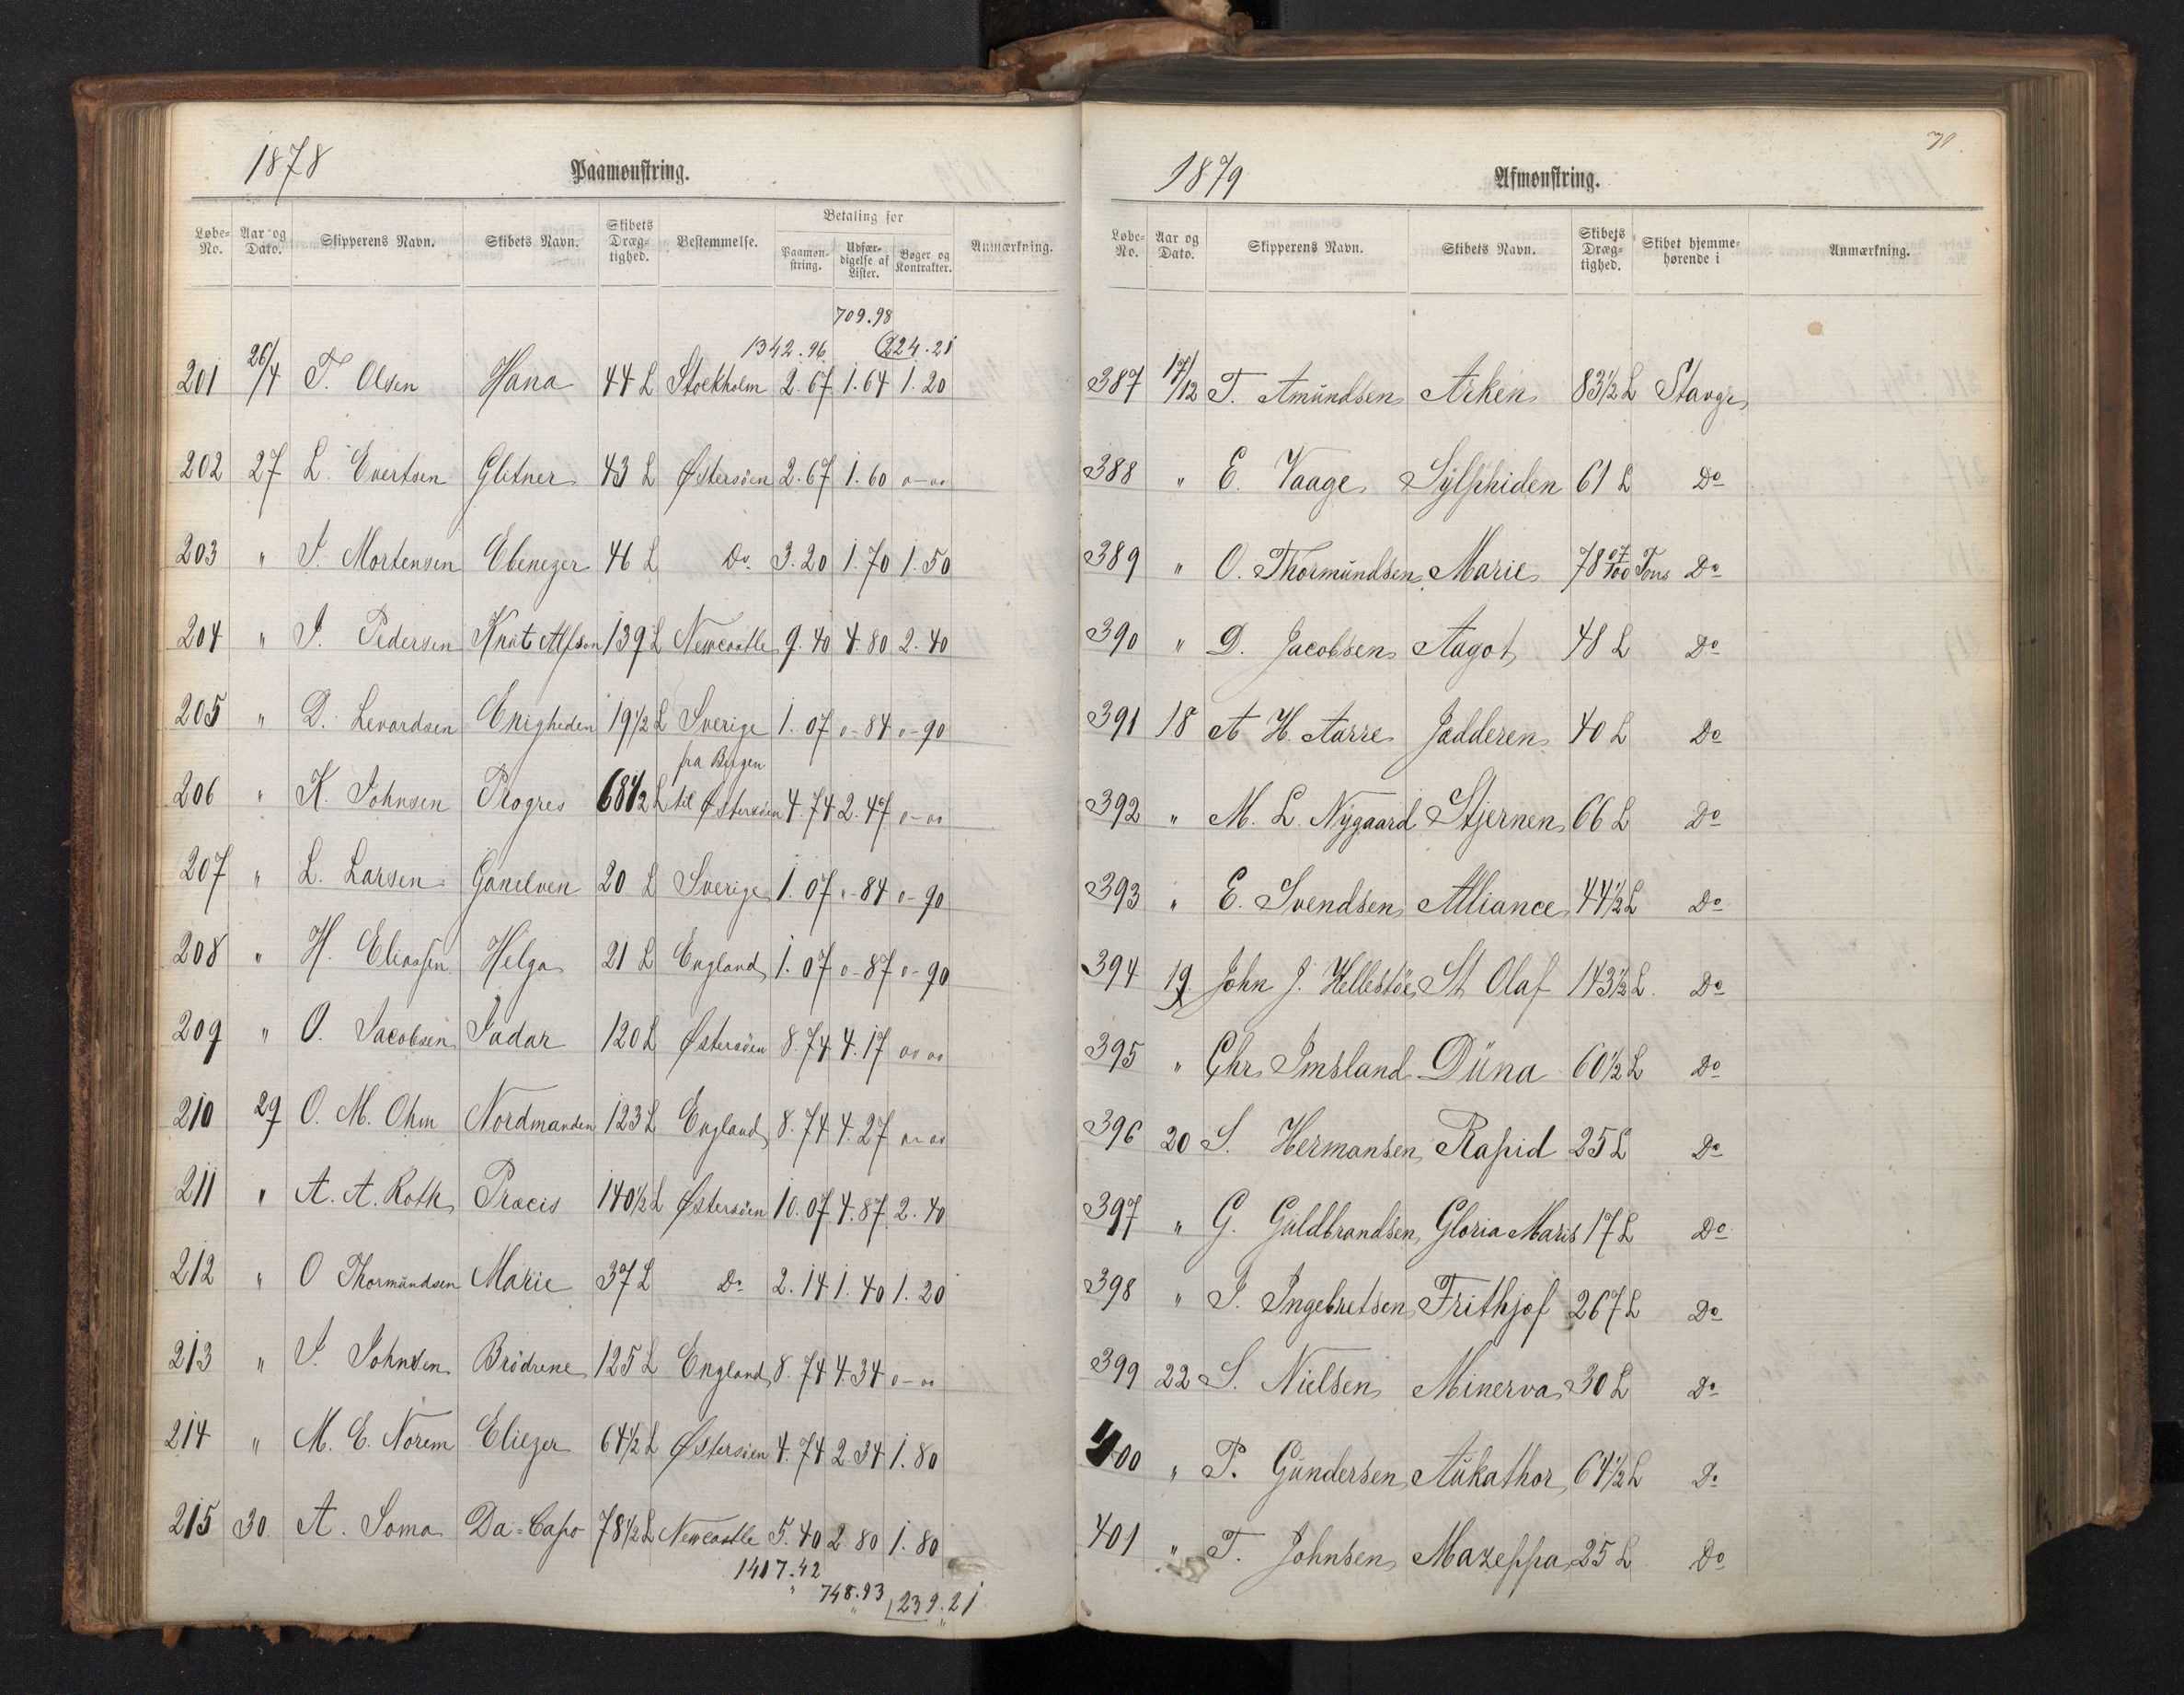 1878
Paamønstring.
Løbe-No. Aar og Dato. Skipperens Navn. Skibets Navn. Skibets Dræg-tighed. Bestemmelse. Betaling for Paamøn-string. Udfær-digelse af Lister. Bøger og Kontrakter. Anmærkning.
709.98
1342.96 224.21
201 26/4 T. Olsen Hana 44 L Stockholm 2.67 1.64 1.20
202 27 L. Evertsen Glitner 43 L Østersöen 2.67 1.60 0-00
203 " J. Mortensen Ebenezer 46 L Do. 3.20 1.70 1.50
204 " J. Pedersen Knut Alfson 139 L Newcastle 9.40 4.80 2.40
205 " D. Levardsen Enigheden 19 1/2 L Sverige 1.07 0-84 0-90
fra Bergen
206 " K. Johnsen Progres 68 1/2 L til Østersöen 4.74 2.47 0-00
207 " L. Larsen Ganelven 20 L Sverige 1.07 "-84 0-90
208 " H. Eliassen Helga 21 L England 1.07 0-87 0-90
209 " O. Jacobsen Jadar 120 L Østersöen 8.74 4.17 00 00
210 29 O. M. Ohm Nordmanden 123 L England 8.74 4.27 00-00
211 " A. A. Roth Precis 140 1/2 L Østersöen 10.07 4.87 2.40
212 " O Thormundsen Marie 37 L Do 2.14 1.40 1.20
213 " J. Johnsen Brödrene 125 L England 8.74 4.34 0-00
214 " M. E. Norem Eliezer 64 1/2 L Østersöen 4.74 2.34 1.80
215 30. A. Soma Da-Capo 78 1/2 L Newcastle 5.40 2.80 1.80
1417.42
748.93 239.21
70.
1879
Afmønstring.
Løbe-No. Aar og Dato. Skipperens Navn. Skibets Navn. Skibets Dræg-tighed. Skibet hjemme-hørende i Anmærkning.
387 17/12 T. Amundsen Arken 83 1/2 L Stavgr
388 " E. Vaage Sylphiden 61 L Do
389 " O. Thormundsen Marie 78 07/100 Tons Do
390 " D. Jacobsen Aagot 48 L Do
391 18 A H. Aarre Jædderen 40 L Do
392 " M. L. Nygaard Stjernen 66 L Do
393 " E. Svendsen Alliance 44 1/2 L Do
394 19. John J. Hellestöe St Olaf 143 1/2 L. Do
395 " Chr. Imsland Düna 60 1/2 L Do
396 20 S. Hermansen Rapid 25 L Do
397 " G. Guldbrandsen Gloria Maris 17 L Do
398 " J. Ingebretsen Frithjof 267 L Do
399 22 S. Nielsen Minerva 30 L Do
400 " P. Gundersen Aukathor 64 1/2 L Do
401 " T. Johnsen Mazeppa 25 L Do